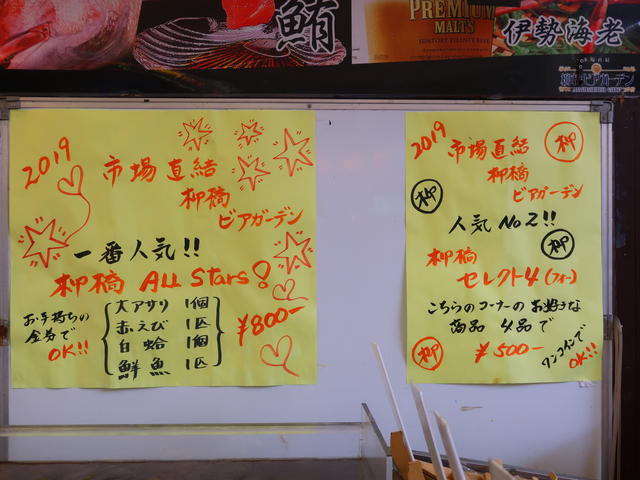 鮪
PREMIUM
MALT'S
伊勢海老
2019
市場直結
柳橋
ビアガーデン
一番人気!!
柳橋 ALL Stars!
大アサリ 1個
赤えび 1匹
白蛤 1個
鮮魚 1匹
お手持ちの
金券で
OK!!
¥800-
2019
市場直結
柳橋
ビアガーデン
柳
柳
人気 No2!!
柳
柳橋
セレクト4(フォー)
こちらのコーナーの お好きな
商品 4品で
柳
¥500-
ワンコインで
OK!!